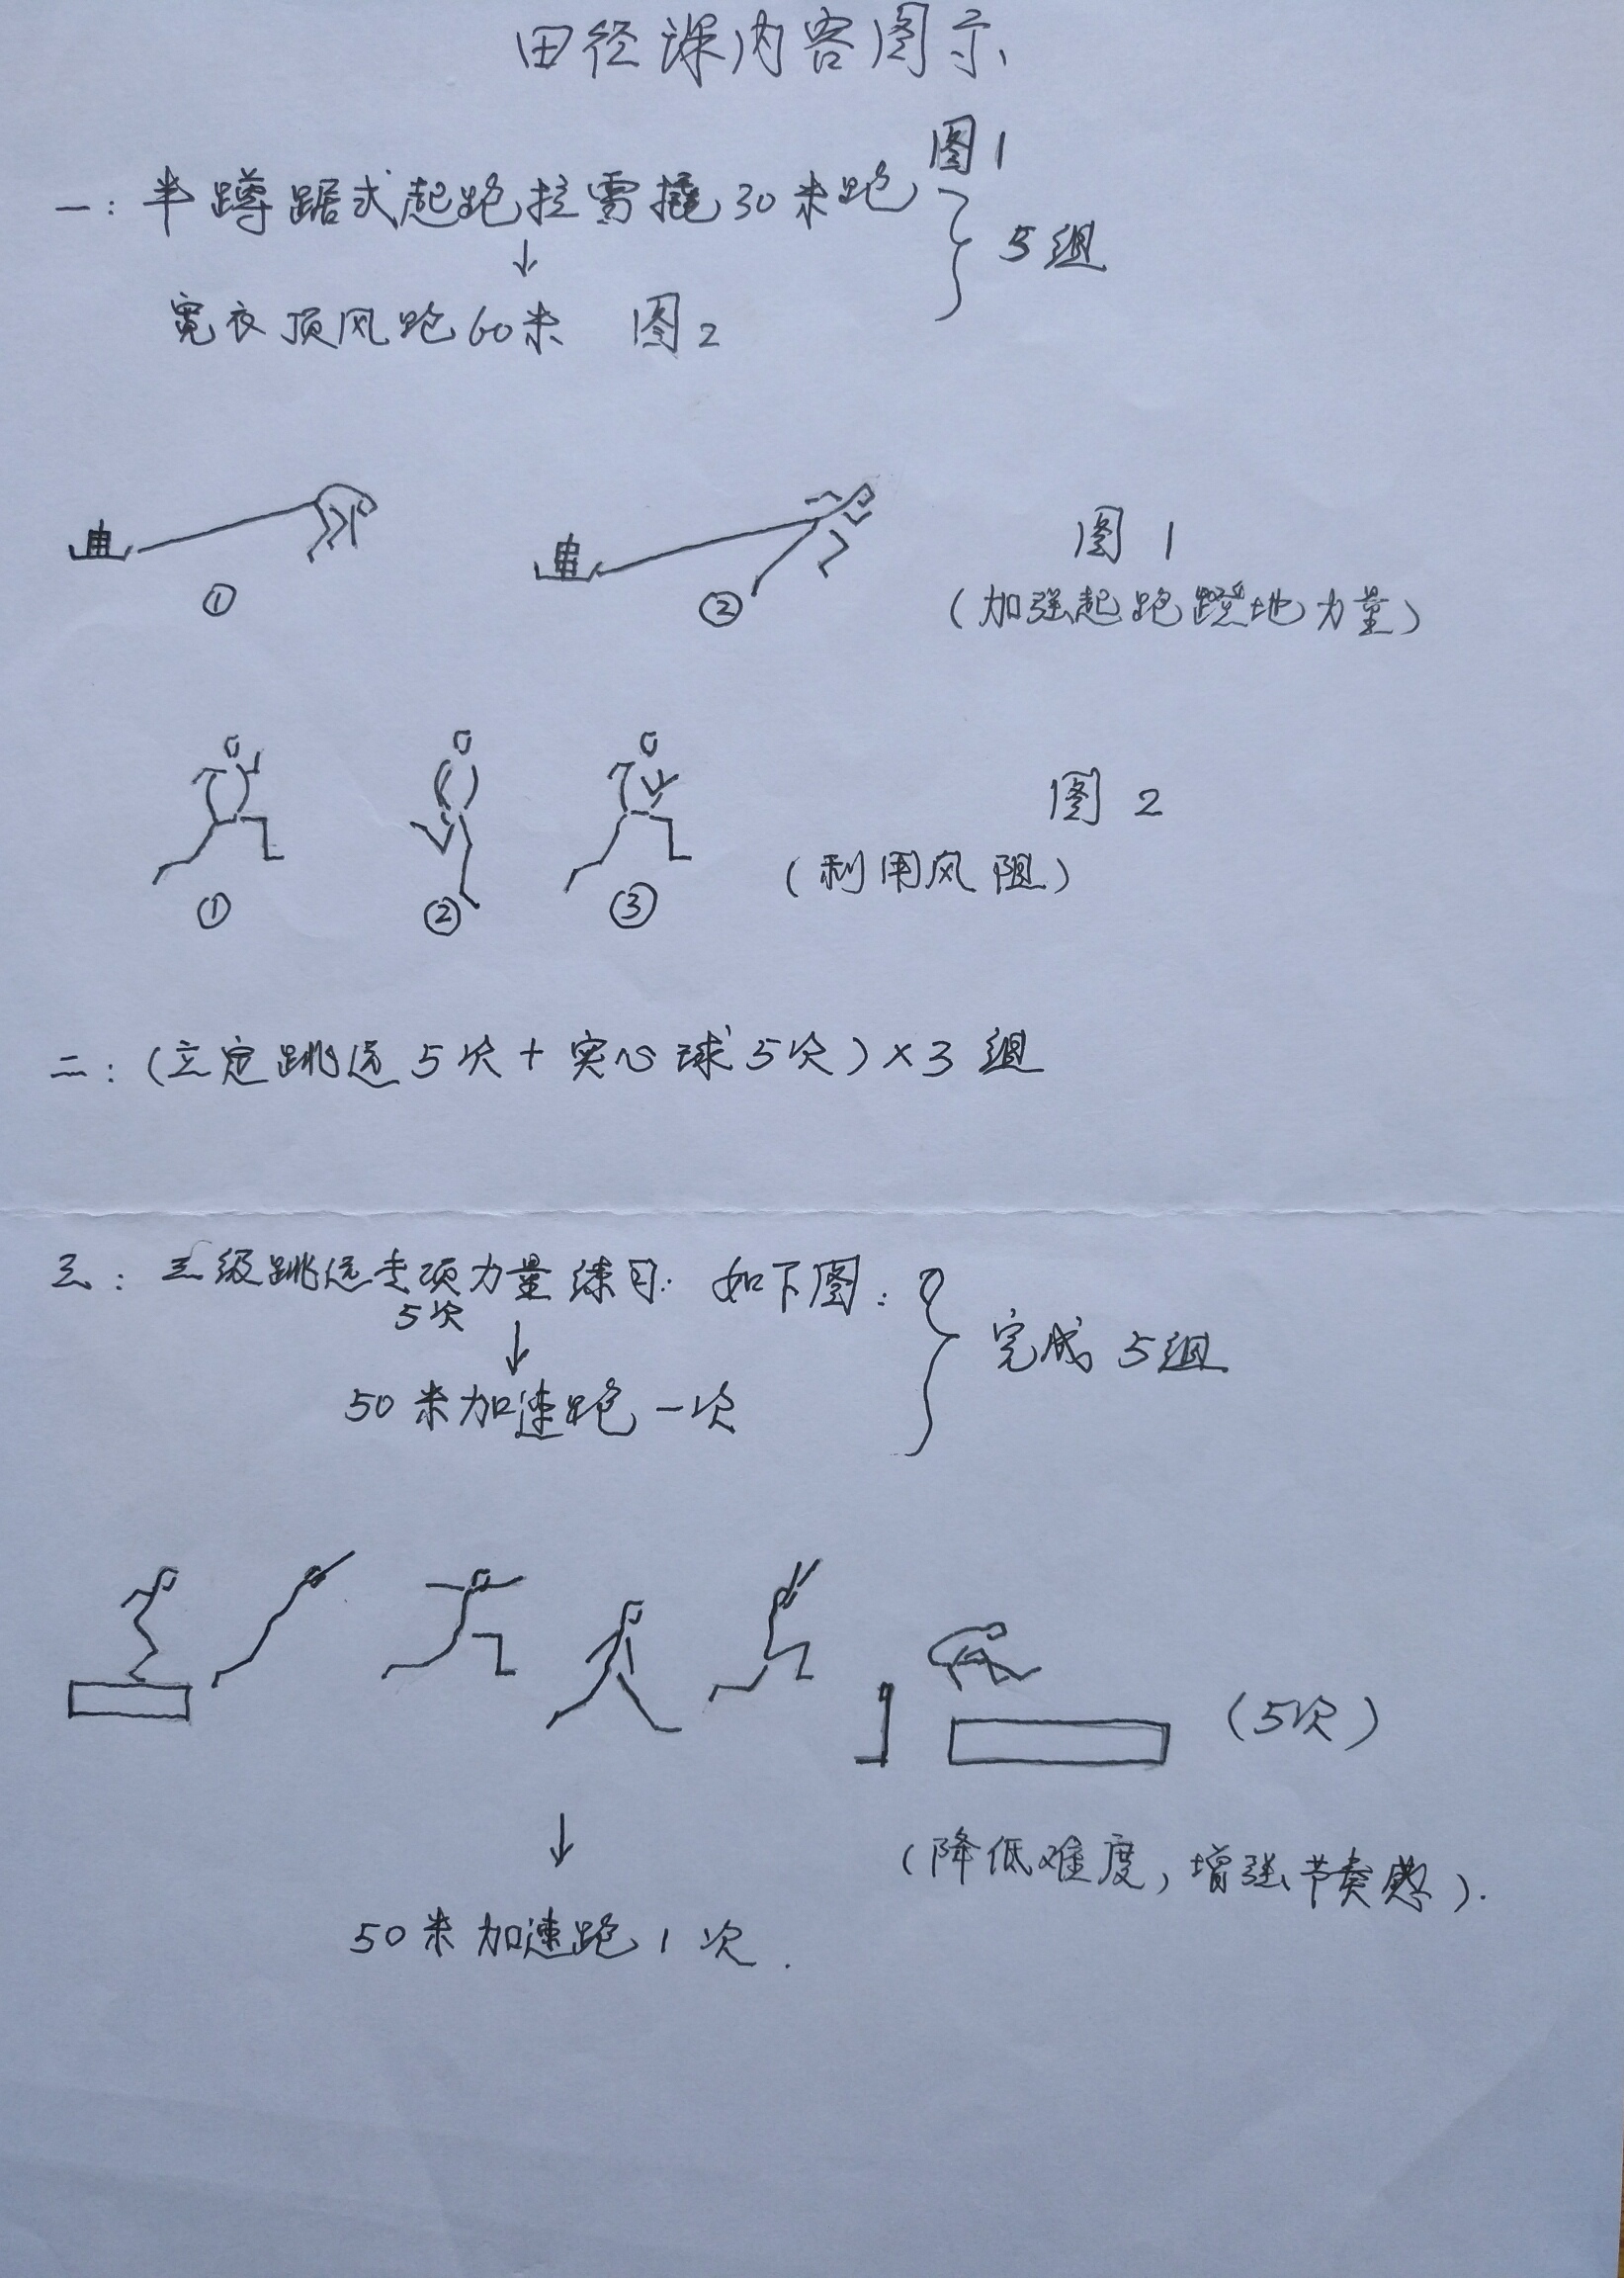 田径课内容图示
一：半蹲踞式起跑拉雪撬30米跑 图1
↓
5组
宽衣顶风跑60米 图2
① ② 图1
(加强起跑蹬地力量)
图2
(利用风阻)
① ② ③
二：(立定跳远5次+实心球5次)×3组
三：三级跳远专项力量练习：如下图：
5次
↓
完成5组
50米加速跑一次
(5次)
↓
(降低难度，增强节奏感).
50米加速跑1次.